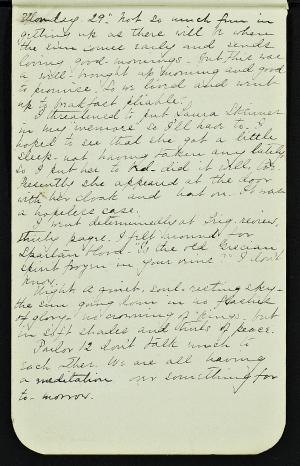 Monday 29" Not so much fun in
getting up as there will be when
the sun comes early and sends
loving good-mornings - but this was
a well-brought up morning and good
to promise. So we lived and went
up to breakfast pliable.
I threatened to put Laura
in my memoir so I'll have to. I
hoped to see that she got a little
sleep - not having taken any lately,
so I put her to bed - did it well, too.
Presently she appeared at the door
with her cloak and hat on. It was
a hopeless case.
I went determinedly at review,
thirty pages. I felt around for
Spartan blood. "Is the old Grecian
spirit frozen in your veins?" I don't
know.
Night a quiet, soul-resting sky -
the sun going down in no flashes
of glory - no crowning of kings - but
in soft shades and hints of peace.
Parlor 12 don't talk much to
each other. We are all having
a meditation or something for
to-morrow.